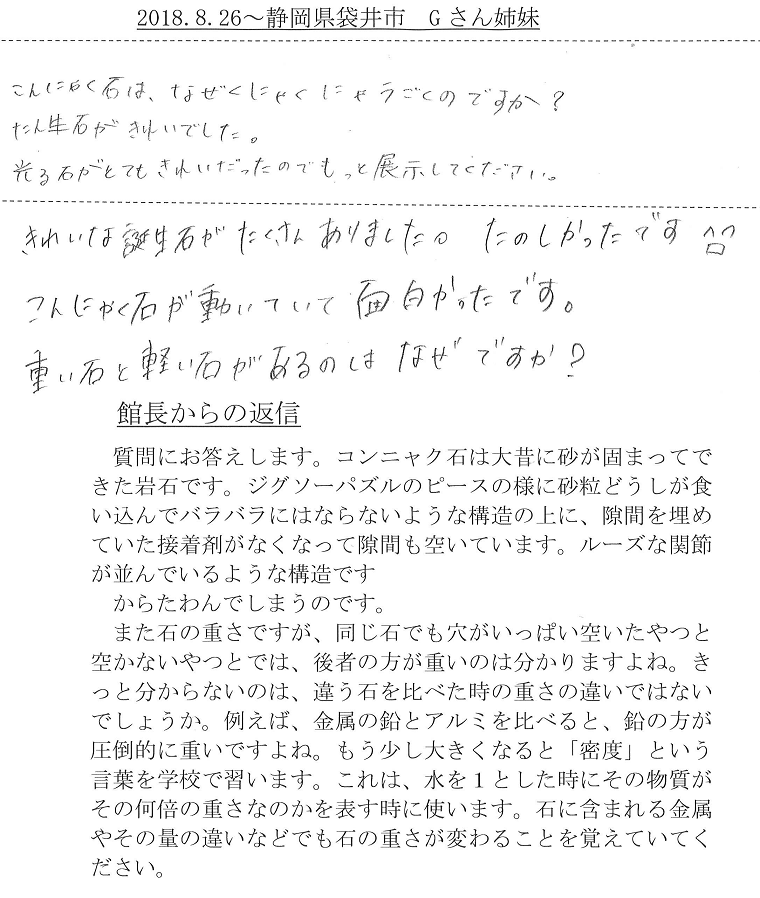 2018.8.26～静岡県袋井市　Gさん姉妹
こんにゃく石は、なぜくにゃくにゃうごくのですか？
たん生石がきれいでした。
光る石がとてもきれいだったのでもっと展示してください。
きれいな誕生石がたくさんありました。たのしかったです
こんにゃく石が動いていて面白かったです。
重い石と軽い石があるのはなぜですか？
館長からの返信
質問にお答えします。コンニャク石は大昔に砂が固まってで
きた岩石です。ジグソーパズルのピースの様に砂粒どうしが食
い込んでバラバラにはならないような構造の上に、隙間を埋め
ていた接着剤がなくなって隙間も空いています。ルーズな関節
が並んでいるような構造です
からたわんでしまうのです。
また石の重さですが、同じ石でも穴がいっぱい空いたやつと
空かないやつとでは、後者の方が重いのは分かりますよね。き
っと分からないのは、違う石を比べた時の重さの違いではない
でしょうか。例えば、金属の鉛とアルミを比べると、鉛の方が
圧倒的に重いですよね。もう少し大きくなると「密度」という
言葉を学校で習います。これは、水を１とした時にその物質が
その何倍の重さなのかを表す時に使います。石に含まれる金属
やその量の違いなどでも石の重さが変わることを覚えていてく
ださい。